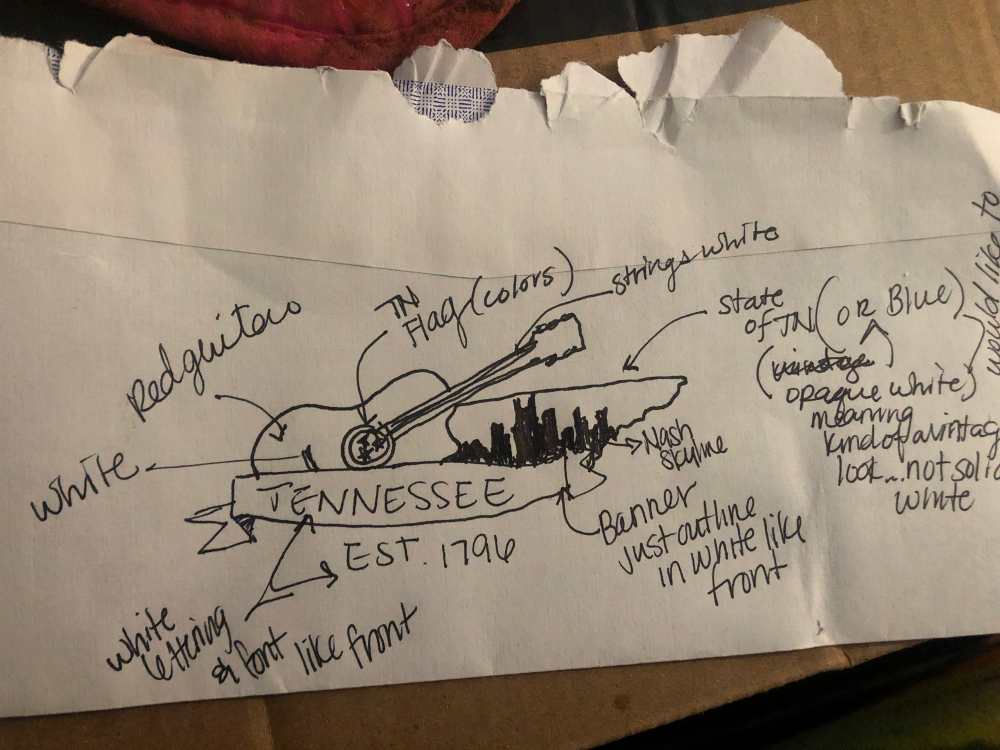 Red guitar
TN
Flag (colors)
strings white
would like to
State
of TN (OR Blue)
(vintage
opaque white)
meaning
kind of a vintag
look...not solid
white
white
Nash
Skyline
TENNESSEE
EST. 1796
Banner
just outline
in white like
front
white
lettering
& font like front